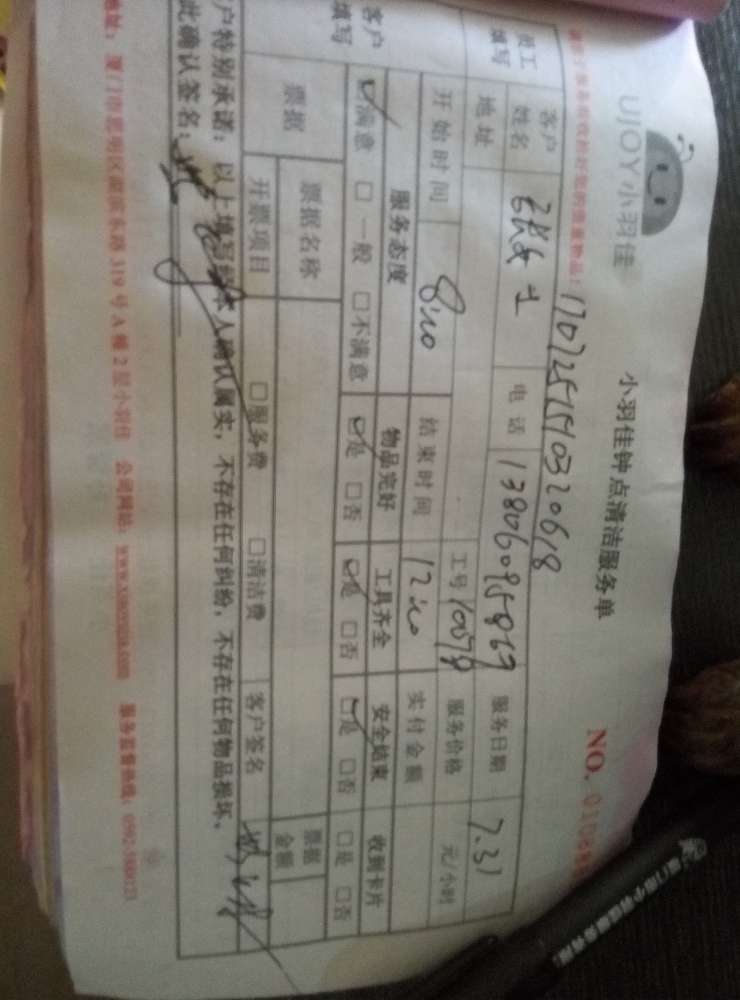 UJOY小羽佳
小羽佳钟点清洁服务单
NO.
170725151403 20618
员工填写
客户姓名 女士 电话 13806095869 服务日期 7.31
地址 工号 10078 服务价格 元/小时
开始时间 8:00 结束时间 12:00 实付金额
客户填写
服务态度 物品完好 工具齐全 安全结束 收到卡片
☑满意 □一般 □不满意 ☑是 □否 ☑是 □否 ☑是 □否 □是 □否
票据 票据名称 票据金额
开票项目 □服务费 □清洁费 客户签名
户特别承诺：以上填写经本人确认属实，不存在任何纠纷，不存在任何物品损坏。
此确认签名：
地址：厦门市思明区湖滨东路319号A幢2层小羽佳 公司网站：www.xiaoyujia.com 服务监督热线：